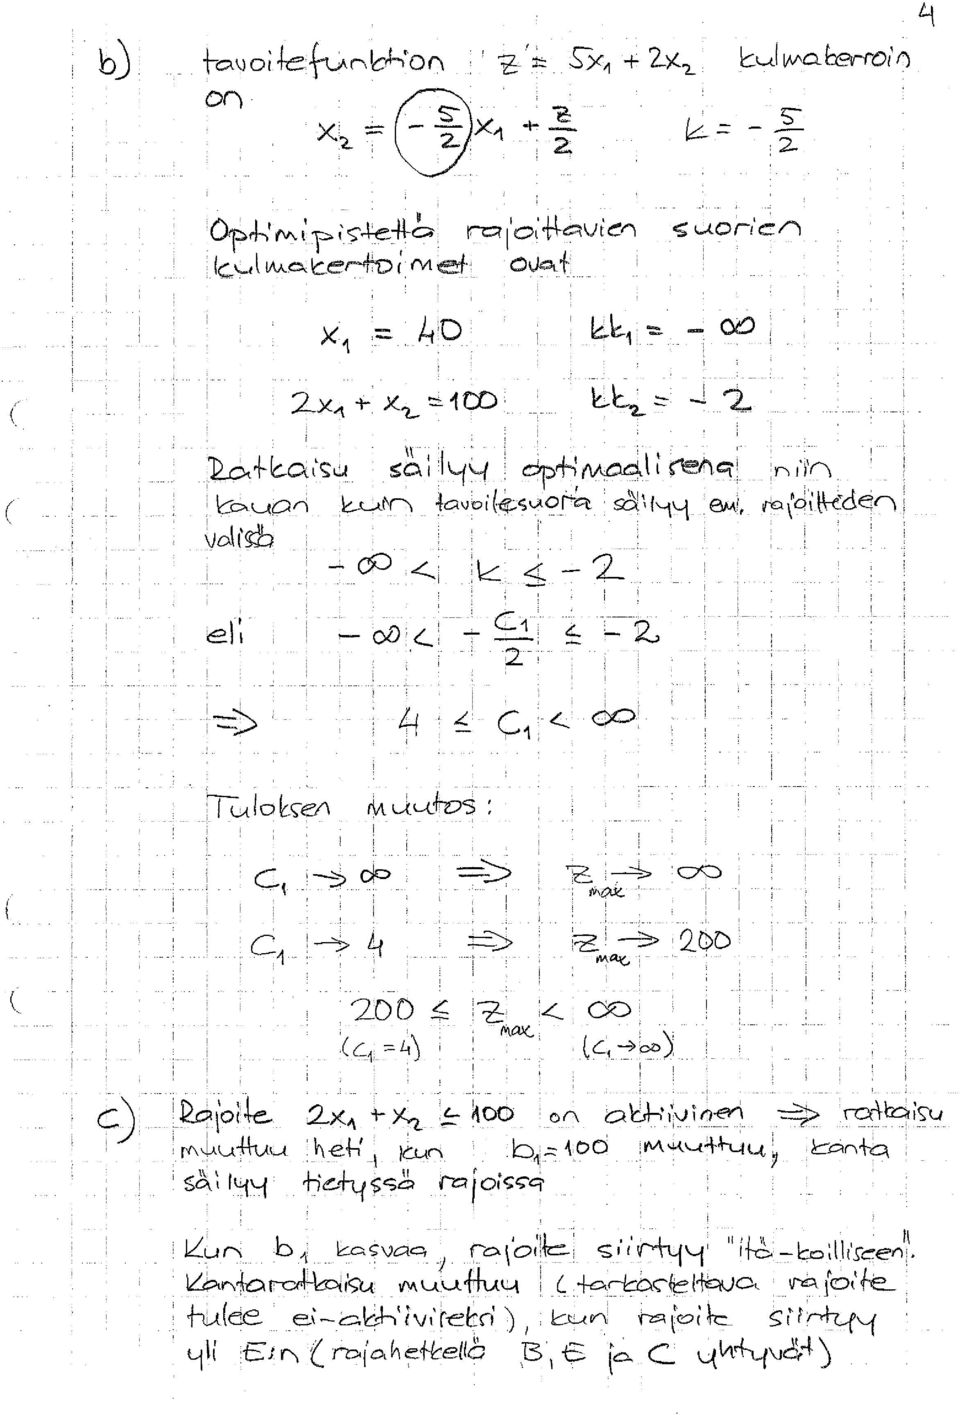 4
b) tavoitefunktion z = 5x₁ + 2x₂ kulmakerroin
on
x₂ = (-5/2)x₁ + z/2 k = -5/2
Optimipistettä rajoittavien suorien
kulmakertoimet ovat
x₁ = 40 kk₁ = -∞
2x₁ + x₂ = 100 kk₂ = -2
Ratkaisu säilyy optimaalisena niin
kauan kuin tavoitesuora säilyy em. rajoitteden
välissä
-∞ < k ≤ -2
eli -∞ < -C₁/2 ≤ -2
⇒ 4 ≤ C₁ < ∞
Tuloksen muutos:
C₁ → ∞ ⇒ z max → ∞
C₁ → 4 ⇒ z max → 200
200 ≤ z max < ∞
(C₁ = 4) (C₁ → ∞)
c) Rajoite 2x₁ + x₂ ≤ 100 on aktiivinen ⇒ ratkaisu
muuttuu heti, kun b₁ = 100 muuttuu, kanta
säilyy tietyssä rajoissa
Kun b₁ kasvaa, rajoite siirtyy "itä-koilliseen".
Kantaratkaisu muuttuu (tarkasteltava rajoite
tulee ei-aktiiviseksi), kun rajoite siirtyy
yli E:n (rajahetkellä B, E ja C yhtyvät)